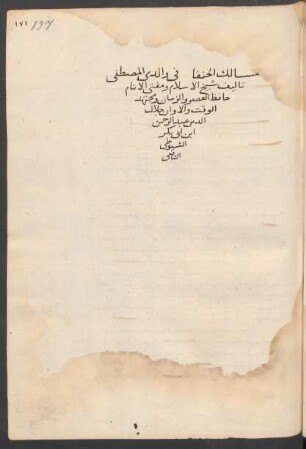 ١٧١ 137
مسالك الحنفا في والدي المصطفى
تاليف شيخ الاسلام ومفتي الانام
حافظ العصر والزمان ومجتهد
الوقت والاوان جلال
الدين عبد الرحمن
ابن ابي بكر
السيوطي
الشافعي